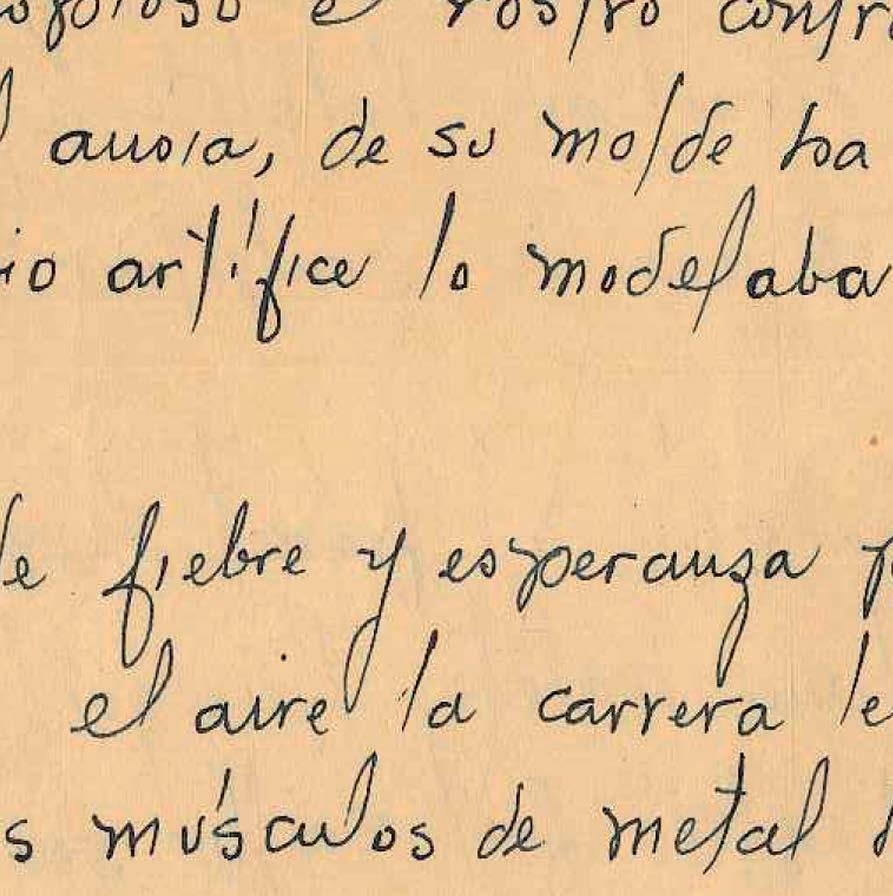 rostro
ansia, de su molde ha
artífice lo modelaba
de fiebre y esperanza
el aire la carrera le
músculos de metal